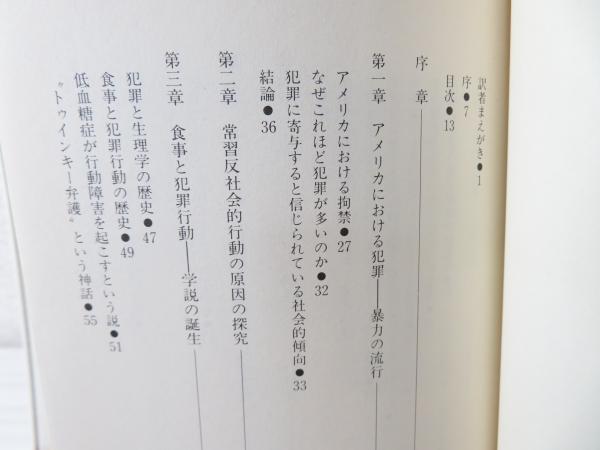 訳者まえがき●1
序●7
目次●13
序章
第一章 アメリカにおける犯罪――暴力の流行
アメリカにおける拘禁●27
なぜこれほど犯罪が多いのか●32
犯罪に寄与すると信じられている社会的傾向●33
結論●36
第二章 常習反社会的行動の原因の探究
第三章 食事と犯罪行動――学説の誕生
犯罪と生理学の歴史●47
食事と犯罪行動の歴史●49
低血糖症が行動障害を起こすという説●51
〝トゥインキー弁護〟という神話●55